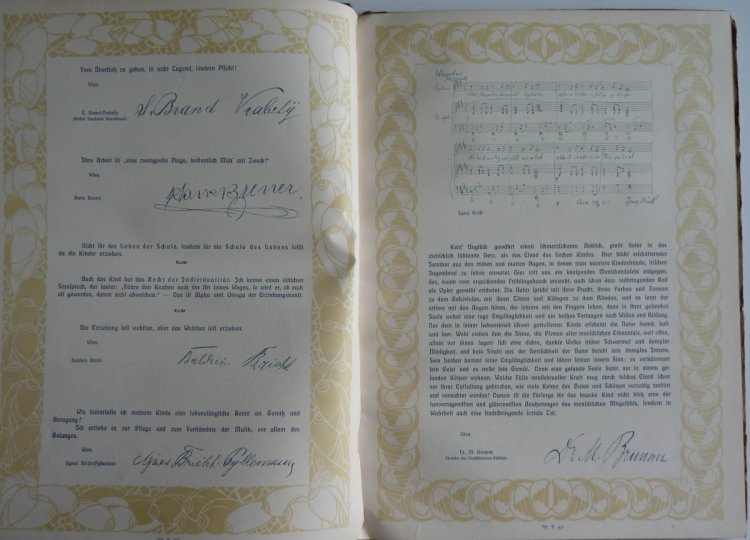 Vom Überfluß zu geben, ist nicht Tugend, sondern Pflicht!
Wien.
S. Brand-Vrabely
S. Brand Vrabely
Ihre Arbeit ist „eine zwangvolle Plage, hoffentlich Müh' mit Zweck!“
Wien.
Nicht für das Leben der Schule, sondern für die Schule des Lebens sollst
du die Kinder erziehen.
Auch das Kind hat das Recht der Individualität. Ich kenne einen göttlichen
Standspruch, der lautet: „Führe den Knaben nach der Art seines Weges, so wird er, ob auch
alt geworden, davon nicht abweichen.“ — Das ist Alpha und Omega der Erziehungskunst.
Die Erziehung soll wohltun, aber das Wohltun soll erziehen.
Wien.
Wie hinterlasse ich meinem Kinde eine lebenslängliche Rente an Genuß und
Anregung?
Ich erziehe es zur Pflege und zum Verständnis der Musik, vor allem des
Gesanges.
Wien.
Agnes Bricht-Pyllemann
Agnes Bricht-Pyllemann
Ignaz Brüll
Kein Unglück gewährt einen schmerzlicheren Anblick, greift tiefer in das
menschlich fühlende Herz, als das Elend des siechen Kindes. Hier blickt erschütternder
Jammer aus den trüben und matten Augen, in denen man muntere Kindesfreude, frischen
Jugendmut zu sehen erwartet. Hier tritt uns ein knospendes Menschendasein entgegen,
das, kaum vom erquickenden Frühlingshauch erweckt, auch schon dem todbringenden Reif
als Opfer geweiht erscheint. Die Natur spricht mit ihrer Pracht, ihren Farben und Formen
zu dem Gehörlosen, mit ihren Tönen und Klängen zu dem Blinden, und es lernt der
erstere mit den Augen hören, der letztere mit den Fingern sehen, denn in ihrer gesunden
Seele wohnt eine rege Empfänglichkeit und ein heißes Verlangen nach Wissen und Bildung.
Nur dem in seiner Lebenskraft schwer getroffenen Kinde erscheint die Natur fremd, kalt
und leer. Wohl stehen ihm die Sinne, die Pforten aller menschlichen Erkenntnis, weit offen,
allein vor ihnen lagert sich eine dichte, dunkle Wolke trüber Schwermut und dumpfer
Müdigkeit, und kein Strahl aus der Herrlichkeit der Natur belebt sein stumpfes Innere.
Sein Leiden hemmt seine Empfänglichkeit und lähmt seinen inneren Sinn; es verkümmert
sein Geist und es welkt sein Gemüt. Denn eine gesunde Seele kann nur in einem ge-
sunden Körper wohnen. Welche Fülle intellektueller Kraft mag durch solches Elend schon
vor ihrer Entfaltung gebrochen, wie viele Keime des Guten und Schönen vorzeitig zerstört
und vernichtet werden! Darum ist die Fürsorge für das kranke Kind nicht bloß eine der
hervorragendsten und glänzendsten Äußerungen des menschlichen Mitgefühls, sondern in
Wahrheit auch eine fruchtbringende soziale Tat.
Wien.
Dr. M. Brunner
Dr. M. Brunner